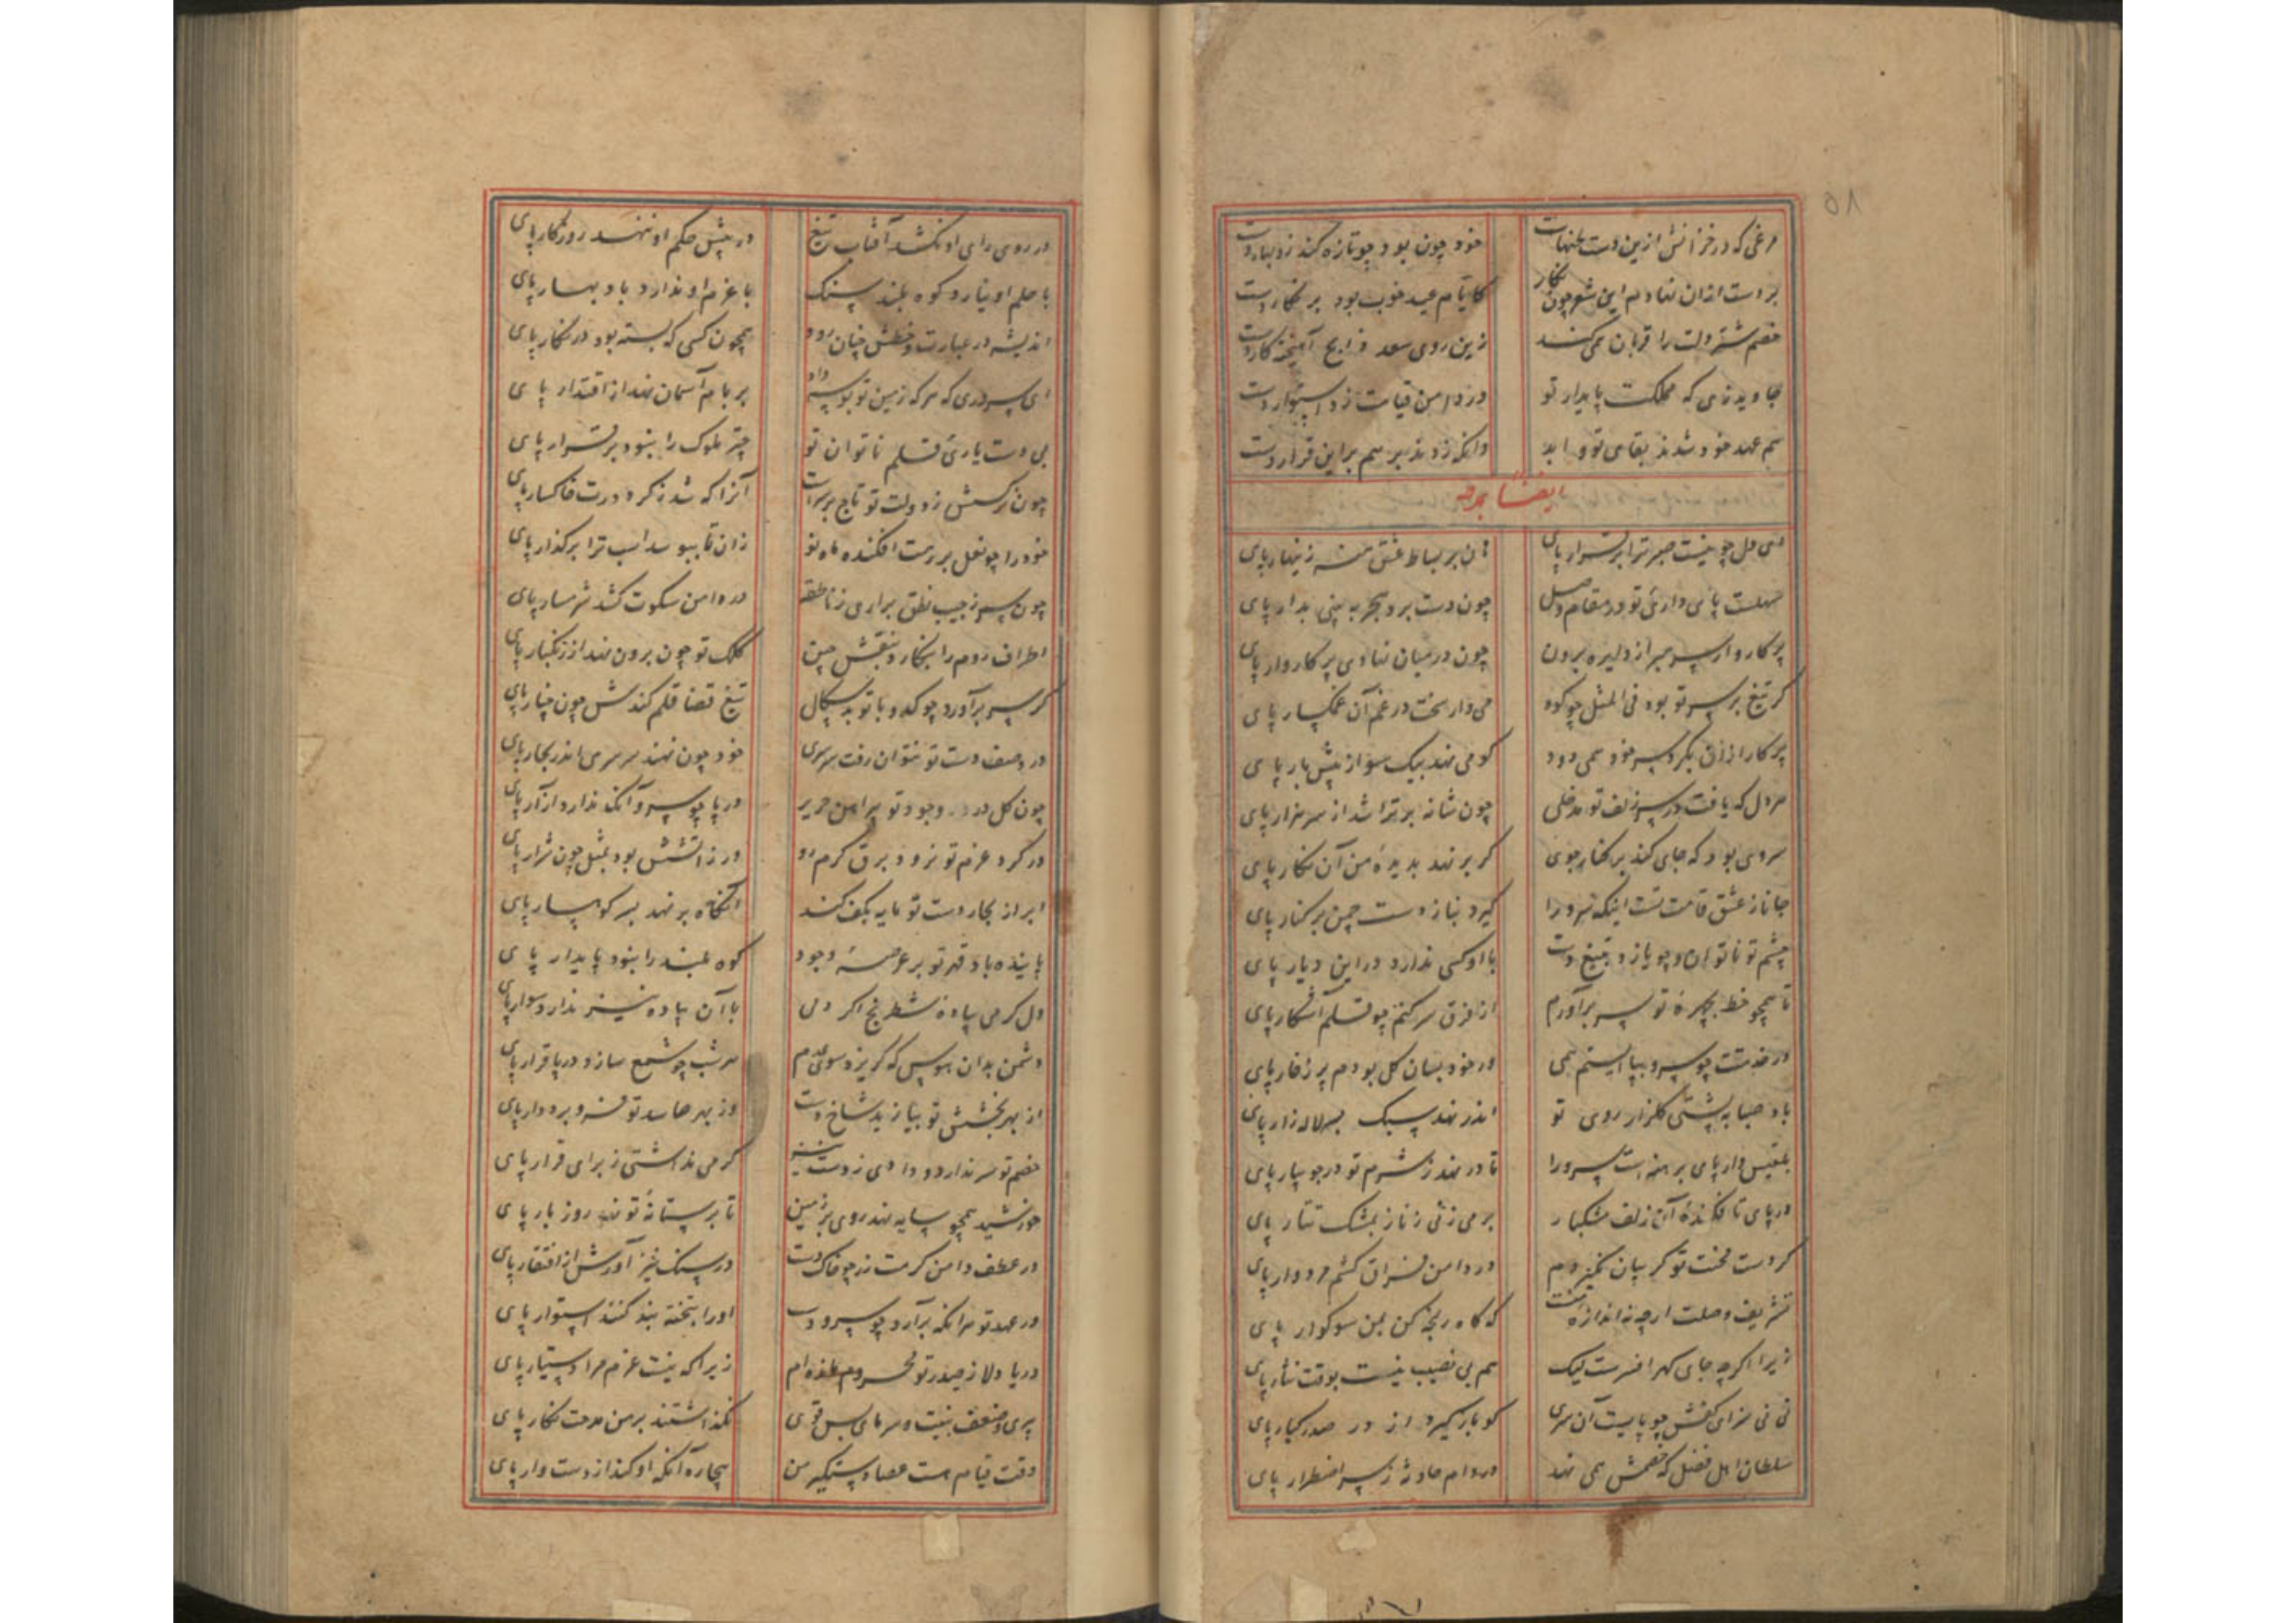 ۵۸
مرغی که در خزانش ازین دست تنهاست خود چون بود چو تازه کند نوبهار دست
بر دست ازان نهادم این شعر چون نگار کایام عید خوب بود بر نگار دست
خصم شتر دلت را قربان همی کنند زین روی سعد ذابح آهیخته کارد دست
جاوید زی که مملکت پایدار تو در دامن قیامت زد استوار دست
هم عهد خود شدند بقای تو و ابد وانکه زدند بر هم براین قرار دست
ایضا یمدحه
ای دل چو نیست صبر ترا برقرار پای هان بر بساط عشق منه زینهار پای
سهلست پای داری تو در مقام وصل چون دست برد هجر به بینی بدار پای
پرکاروار سر مبر از دایره برون چون در میان نهادی پرکاروار پای
گر تیغ بر سر تو بود فی المثل چو کوه می دار سخت در غم آن غمگسار پای
پرکار ازان بگرد سر خود همی دود کو می نهد بیک سو از پیش یار پای
هر دل که یافت در سر زلف تو مدخلی چون شانه برتراشد از سر هزار پای
سروی بود که جای کند بر کنار جوی گر بر نهد بدیده من آن نگار پای
جانا ز عشق قامت تست اینکه سرو را گیرد بناز دست چمن بر کنار پای
چشم تو ناتوان و چو یازد بتیغ دست با او کسی ندارد در این دیار پای
تا همچو خط بچهره تو سر برآورم از فرق سر کنم چو قلم آشکار پای
در خدمتت چو سرو بپا ایستم همی ور خود بسان گل بودم پر ز خار پای
باد صبا به پشتی گلزار روی تو اندر نهد سبک بسر لاله زار پای
بلقیس وار پای برهنه است سرو را تا در نهد ز شرم تو در جویبار پای
در پای تا فکنده آن زلف مشکبار بر می زنی ز ناز بمشک تتار پای
گر دست محنت تو گریبان نگیردم در دامن فراق کشم مردوار پای
تشریف وصلت ارچه نه اندازه منست که گاه رنجه کن بمن سوکوار پای
زیرا اگرچه جای گهر افسرست لیک هم بی نصیب نیست بوقت نثار پای
نی نی سزای کفش چو پایست آن سری کو بازگیرد از در صدر کبار پای
سلطان اهل فضل که خصمش همی نهد در دام حادثه ز سر اضطرار پای
در روی رای او نکشد آفتاب تیغ در پیش حکم او ننهد روزگار پای
با حلم او نیارد کوه بلند سنگ با عزم او ندارد باد بهار پای
اندیشه در عبارت و خطش چنان رود همچون کسی که بسته بود در نگار پای
ای سروری که هر که زمین تو بوسه داد بر بام آسمان نهد از اقتدار پای
بی دست یاری قلم ناتوان تو چتر ملوک را نبود برقرار پای
چون نرگسش ز دولت تو تاج بر سرست آنرا که شد ز گرد درت خاکسار پای
خود را چو نعل بر رهت افکنده ماه نو زان تا ببوسد اسب ترا بر گذار پای
چون سر ز جیب نطق براری ز ناطقه در دامن سکوت کشد شرمسار پای
اطراف روم را بنگارد بنقش چین کلک تو چون برون نهد از زنگبار پای
گر سر برآورد چو کدو با تو بدسگال تیغ قضا قلم کندش چون خیار پای
در وصف دست تو نتوان رفت سرسری خود چون نهند سرسری اندر بحار پای
چون گل درد وجود تو پیراهن حریر در پا چو سرو آنک ندارد ازار پای
در گرد عزم تو نرود برق گرم رو ور ز آتشش بود بمثل چون شرار پای
ابر از بحار دست تو مایه بکف کند آنگاه بر نهد بسر کوهسار پای
پاینده باد قهر تو بر عرصه وجود کوه بلند را نبود پایدار پای
دل گرمی پیاده شطرنج اگر دمی با آن پیاده نیز ندارد سوار پای
دشمن بدان هوس که گریزد سوی عدم هر شب چو شمع سازد در پا قرار پای
از بهر بخشش تو بیازید شاخ دست وز بهر حاسد تو فرو برد دار پای
خصم تو سر ندارد و دادی ز دست نیز گر می نداشتی ز برای فرار پای
خورشید همچو سایه نهد روی بر زمین تا بر ستانه تو نهد روز بار پای
در عطف دامن کرمت زد چو خاک دست در سنگ خیز آورش از افتقار پای
در عهد تو هرانکه برآرد چو سرو دست او را بتخته بند کنند استوار پای
دریا دلا ز صدر تو محروم مانده ام زیرا که نیست عزم مرا دستیار پای
پیری و ضعف بنیت و سرمای بس قوی نگذاشتند بر من مدحت نگار پای
وقت قیام هست عصا دستگیر من بیچاره آنکه او کند از دست وار پای